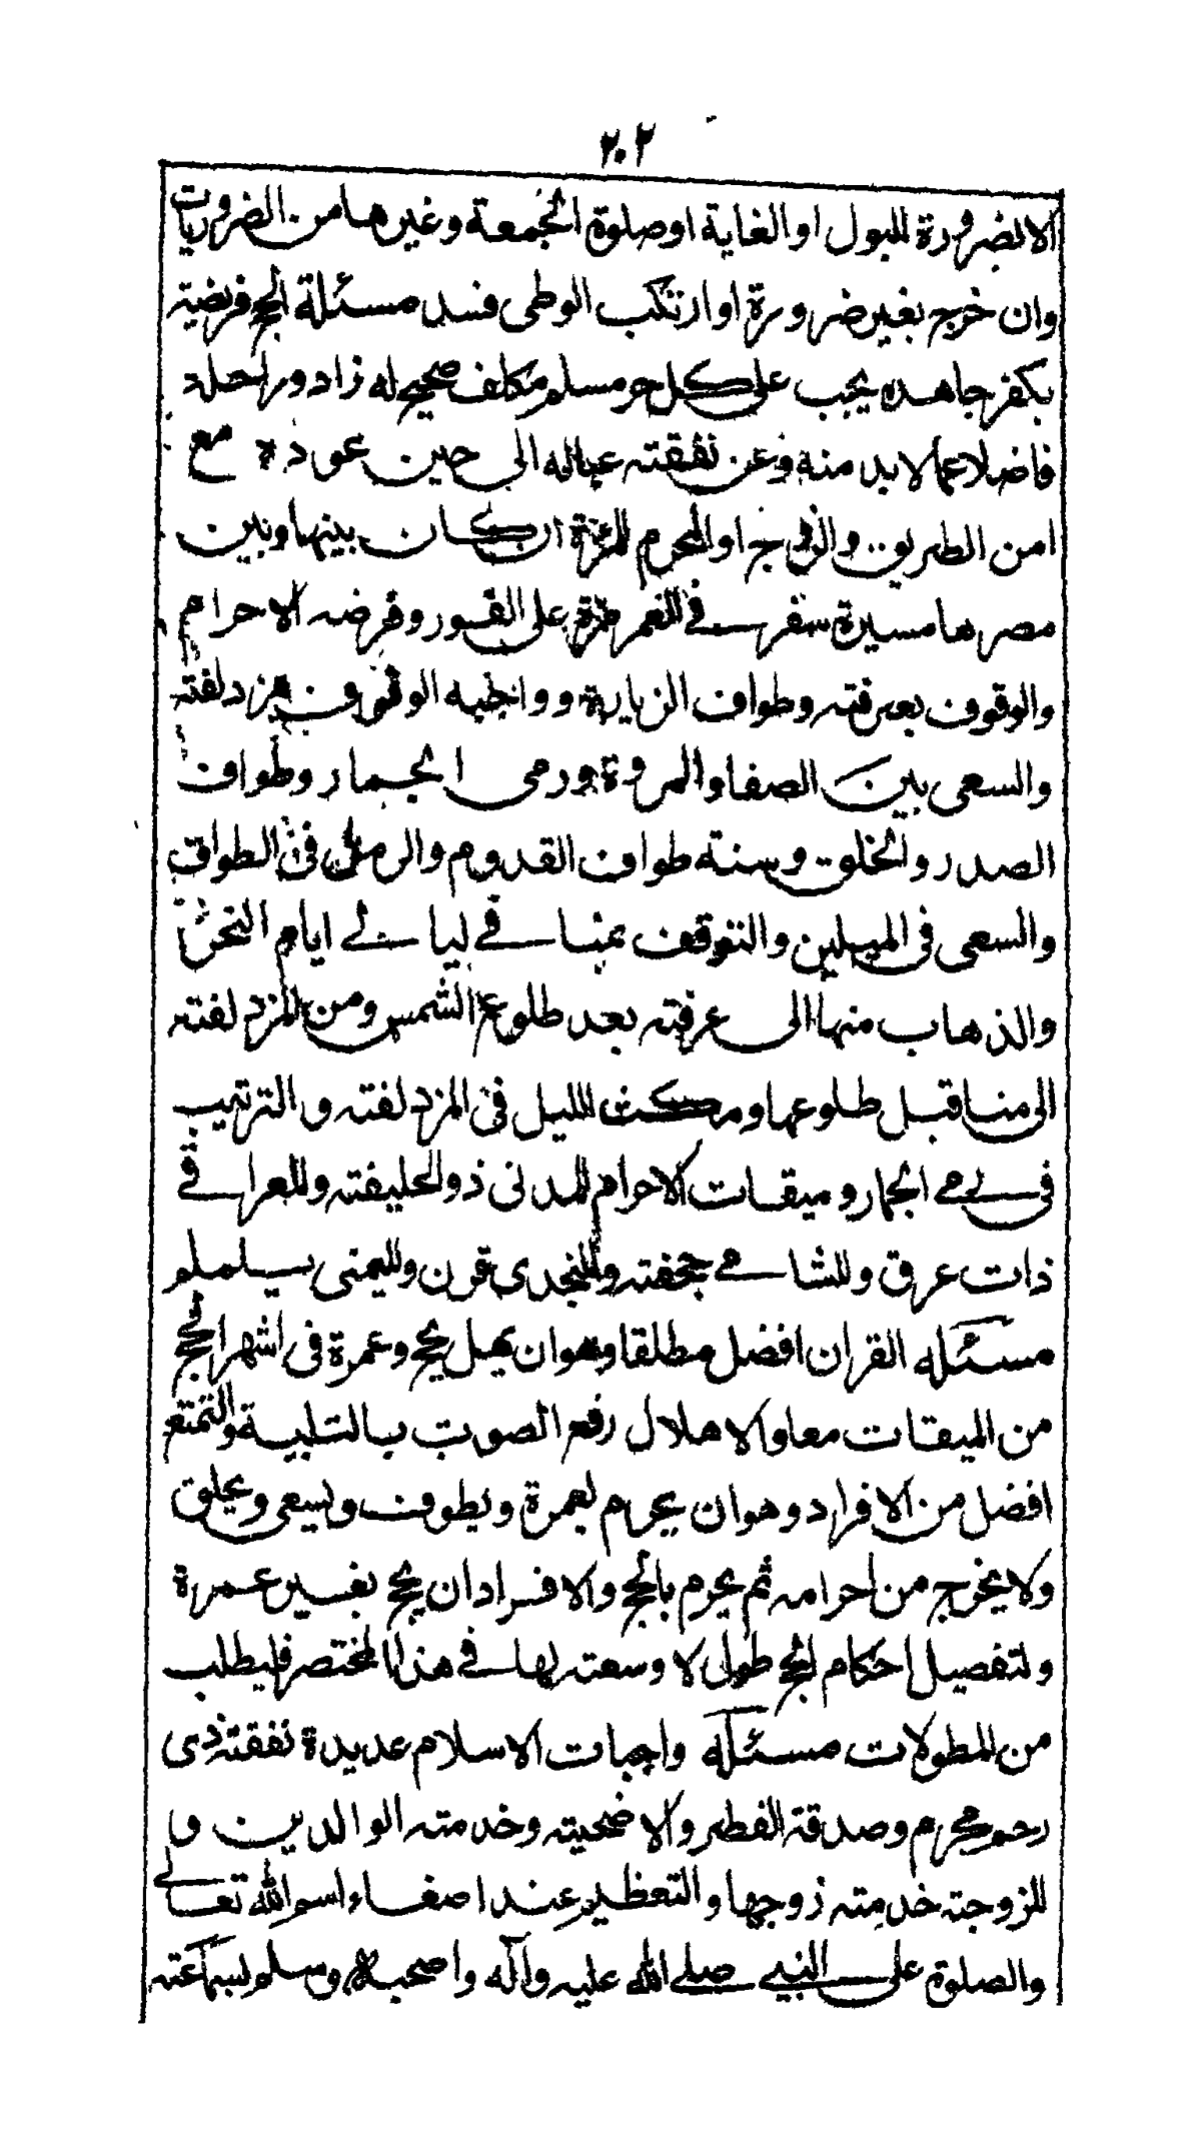 ٢٠٢
الا لضرورة للبول او الغاية او صلوة الجمعة وغيرها من الضروريات
وان خرج بغير ضرورة او ارتكب الوطى فسد مسئلة الحج فريضية
يكفر جاهده يجب على كل حر مسلم مكلف صحيح له زاد وراحلة
فاضلا عما لا بد منه وعن نفقته عياله الى حين عوده مع
امن الطريق والزوج او المحرم للمرئة ان كان بينها وبين
مصرها مسيرة سفر فى العمر مرة على الفور وفرضه الاحرام
والوقوف بعرفته وطواف الزيارة وواجبه الوقوف بمزدلفته
والسعى بين الصفا والمروة ورمى الجمار وطواف
الصدر والحلق وسنته طواف القدوم والرمل فى الطواف
والسعى فى الميلين والتوقف بمنا فى ليالى ايام النحر
والذهاب منها الى عرفته بعد طلوع الشمس ومن المزدلفته
الى منا قبل طلوعها ومكث الليل فى المزدلفته والترتيب
فى رمى الجمار وميقات الاحرام للمدنى ذو الحليفته وللعراقى
ذات عرق وللشامى جحفته وللنجدى قرن ولليمنى يلملم
مسئله القران افضل مطلقا وهو ان يهل بحج وعمرة فى اشهر الحج
من الميقات معا والاهلال رفع الصوت بالتلبية والتمتع
افضل من الافراد وهو ان يحرم لعمرة ويطوف ويسعى ويحلق
ولا يخرج من احرامه ثم يحرم بالحج والافراد ان يحج بغير عمرة
ولتفصيل احكام الحج طول لا وسعته لها فى هذا المختصر فليطلب
من المطولات مسئله واجبات الاسلام عديدة نفقته ذى
رحم محرم وصدقة الفطر والاضحيته وخدمته الوالدين و
للزوجته خدمته زوجها والتعظيم عند اصغاء اسم الله تعالى
والصلوة على النبى صلى الله عليه وآله واصحبه وسلم لسماعته